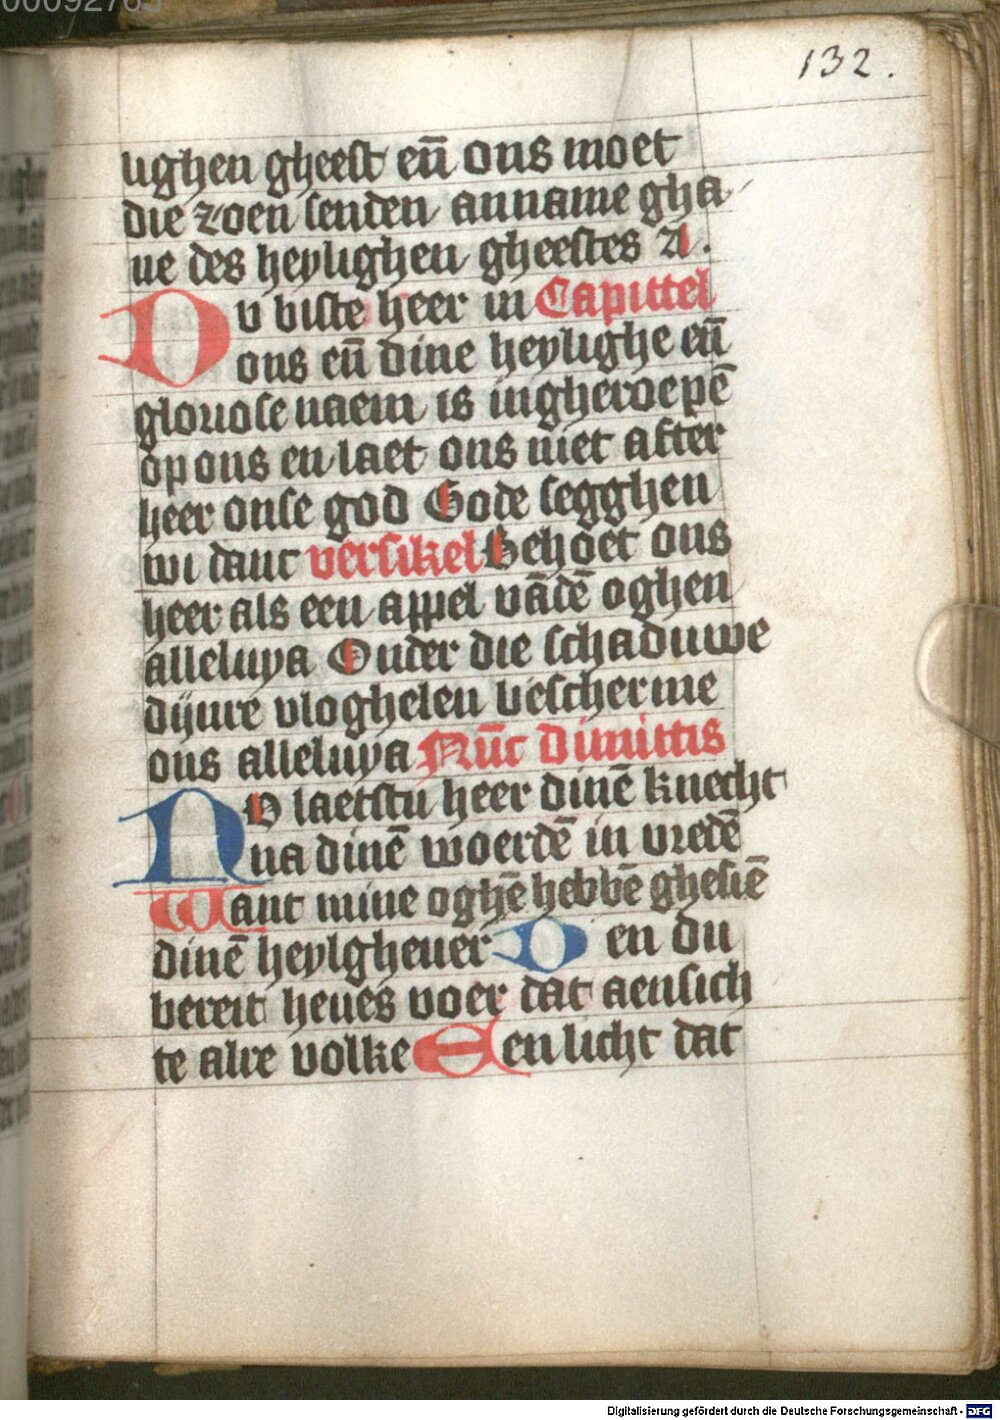 00092765
132.
lighen gheest en̄ ons moet
die zoen senden anname gha
ue des heylighen gheestes A.
DV biste heer in Capittel
ons en̄ dine heylighe en̄
gloriose naem is ingheroepē
op ons en laet ons niet after
heer onse god Gode segghen
wi danc versikel Behoet ons
heer als een appel vādē oghen
alleluya Onder die schaduwe
dijnre vloghelen bescherme
ons alleluya Nūc dimittis
NV laetstu heer dinē knecht
na dinē woerdē in vredē
Want mine oghē hebbē ghesiē
dinē heylgheuer Den du
bereit heues voer dat aensich
te alre volke Een licht dat
Digitalisierung gefördert durch die Deutsche Forschungsgemeinschaft - DFG